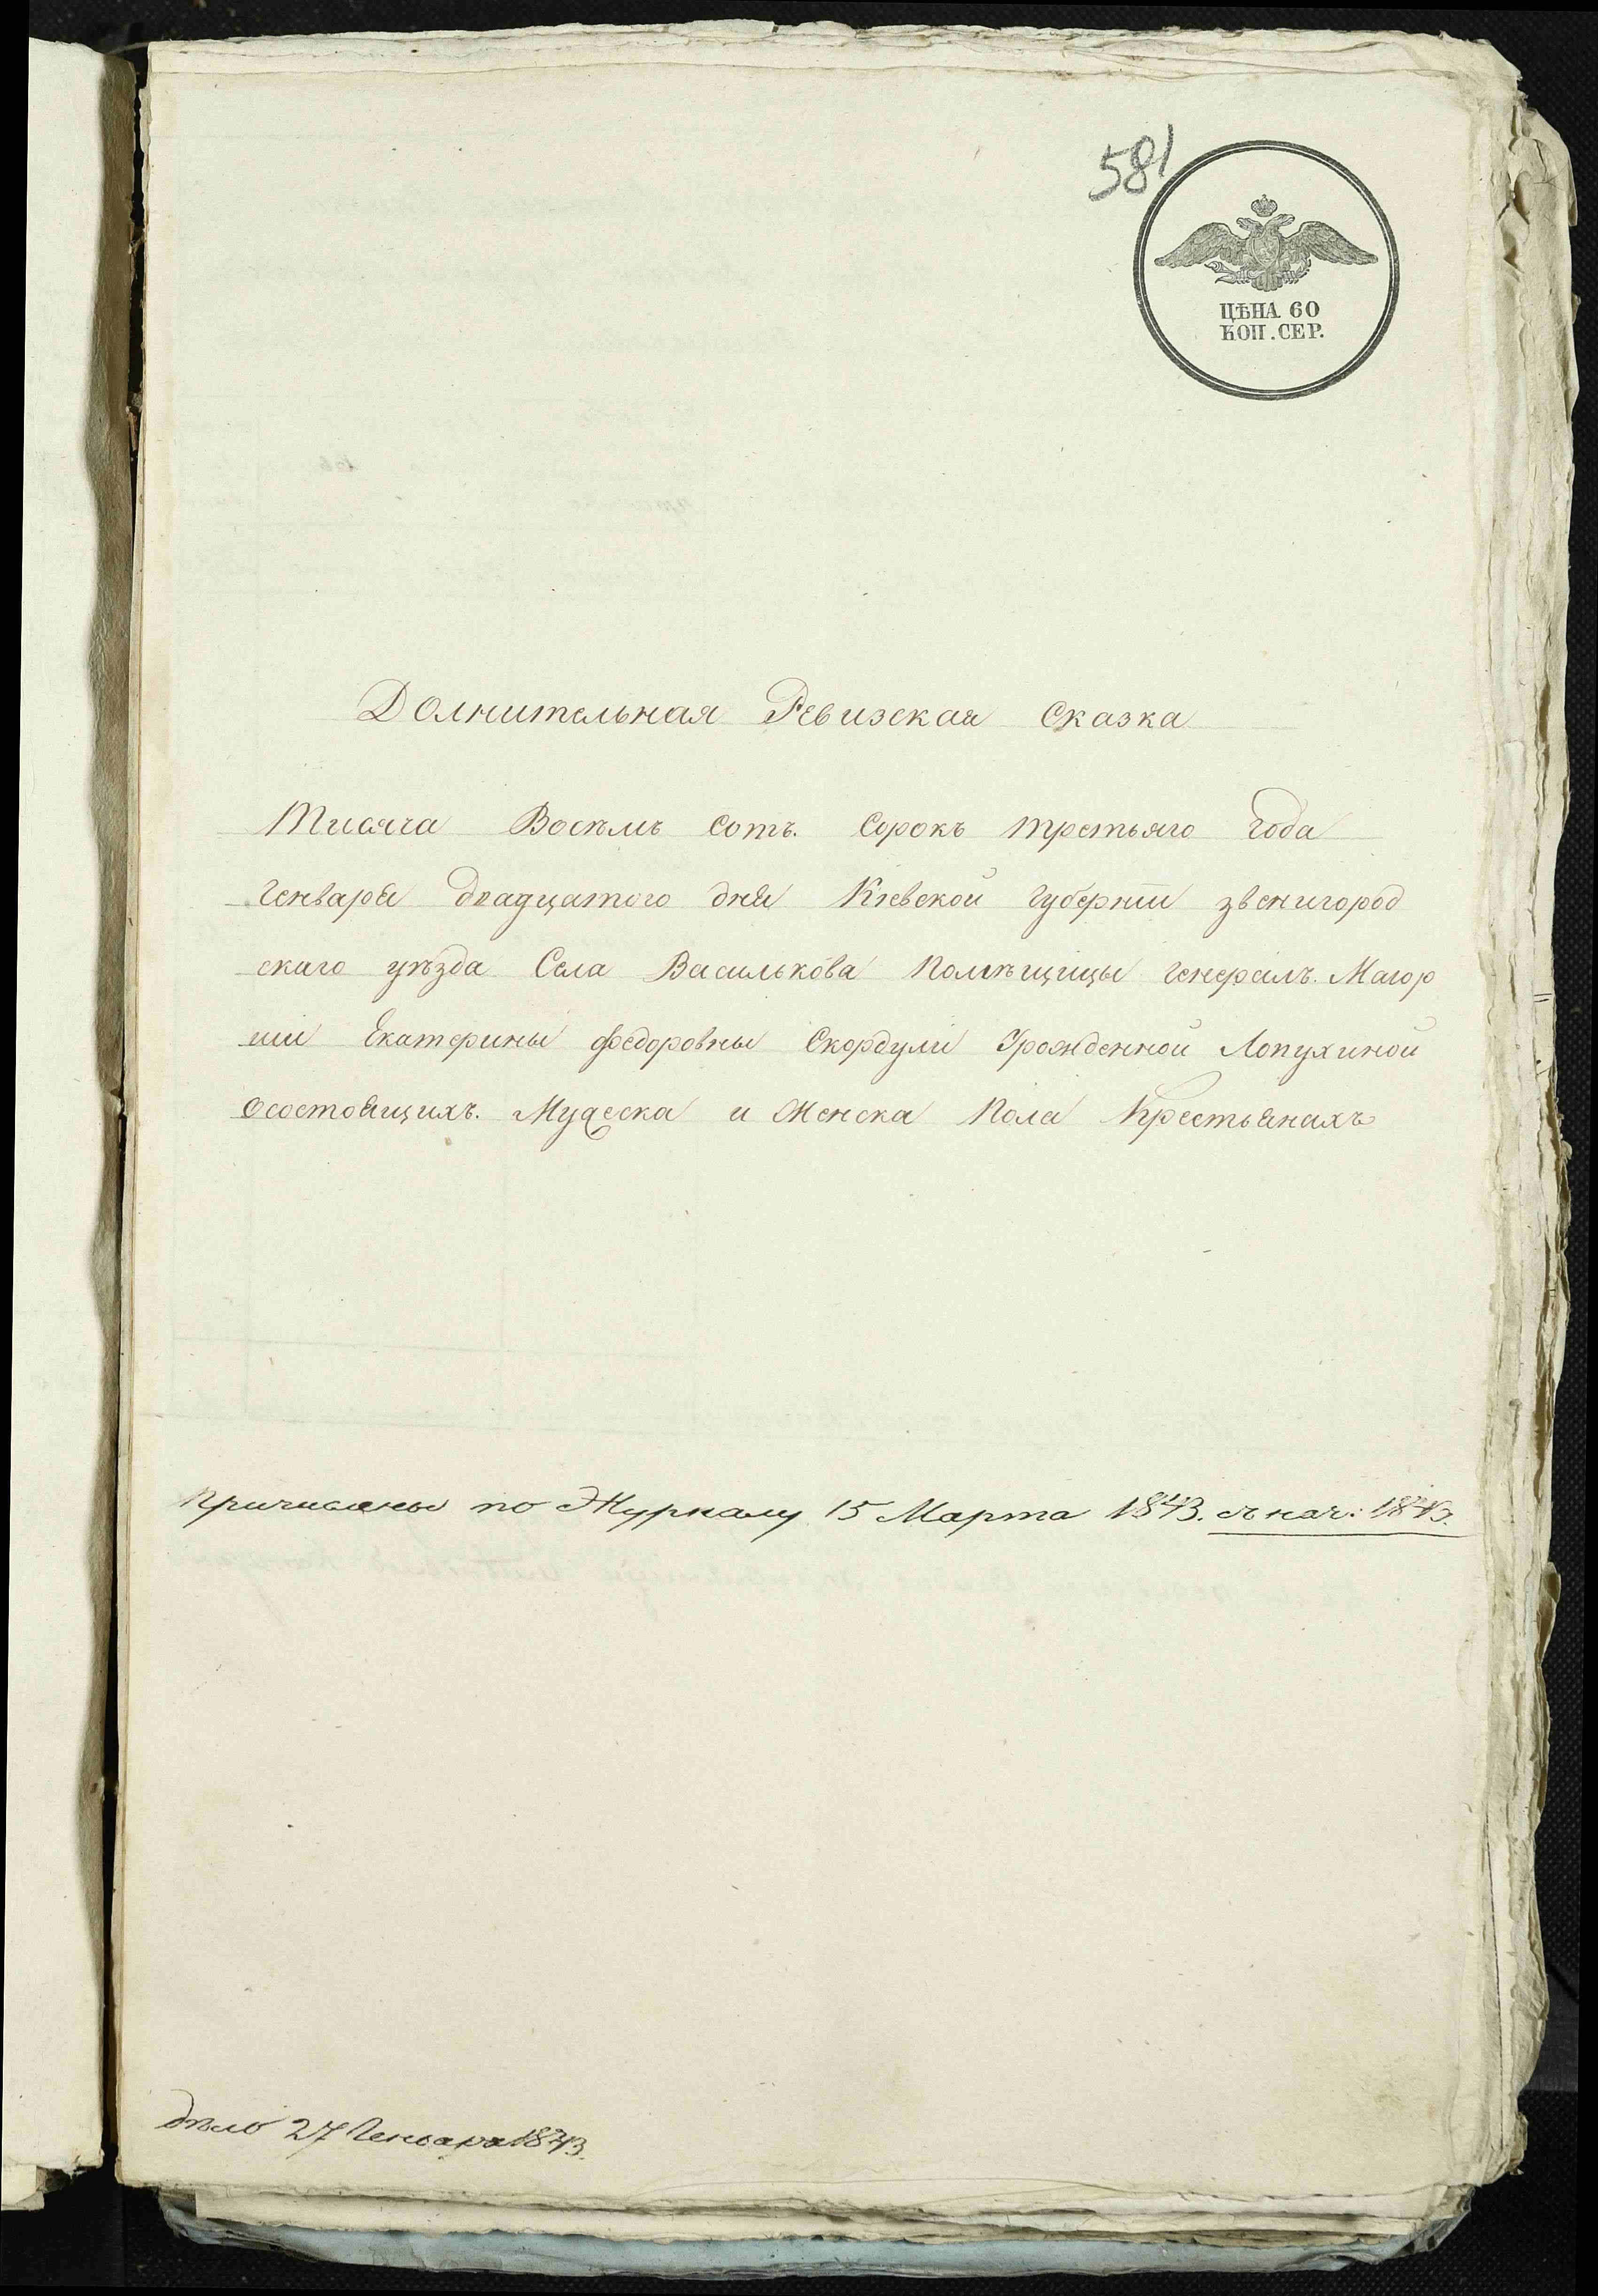 581
ЦѢНА 60
КОП. СЕР.
Долнительная Ревизская сказка
Тисяча Восемъ сотъ. Сорокъ третьяго года
Генваря двадцатого дня Кіевской губерніи звенигород
скаго уѣзда Села Василькова Помѣщицы генералъ. Маіор
ши Екатерины федоровны Скордули Урожденной Лопухиной
о состоящихъ. Мужеска и Женска Пола Крестьянахъ
Причислены по Журналу 15 Марта 1843. съ нач: 1843.
дѣло 27 Генваря 1843.